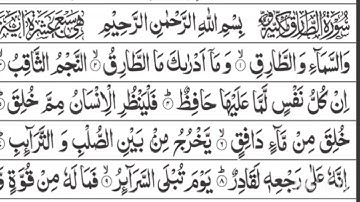 سُوۡرَةُ الطَّارِقِ مَكِّيَّةٌ بِسۡمِ اللّٰهِ الرَّحۡمٰنِ الرَّحِيۡمِ
وَالسَّمَآءِ وَالطَّارِقِ ۙ‏﴿۱﴾ وَمَاۤ اَدۡرٰٮكَ مَا الطَّارِقُ ۙ‏﴿۲﴾ النَّجۡمُ الثَّاقِبُ
اِنۡ كُلُّ نَفۡسٍ لَّمَّا عَلَيۡهَا حَافِظٌ ؕ‏﴿۴﴾ فَلۡيَنۡظُرِ الۡاِنۡسَانُ مِمَّ خُلِقَ
خُلِقَ مِنۡ مَّآءٍ دَافِقٍ ۙ‏﴿۶﴾ يَّخۡرُجُ مِنۡۢ بَيۡنِ الصُّلۡبِ وَالتَّرَآٮِٕبِ
اِنَّهٗ عَلٰى رَجۡعِهٖ لَقَادِرٌ ؕ‏﴿۸﴾ يَوۡمَ تُبۡلَى السَّرَآٮِٕرُ ۙ‏﴿۹﴾ فَمَا لَهٗ مِنۡ قُوَّةٍ وَّ